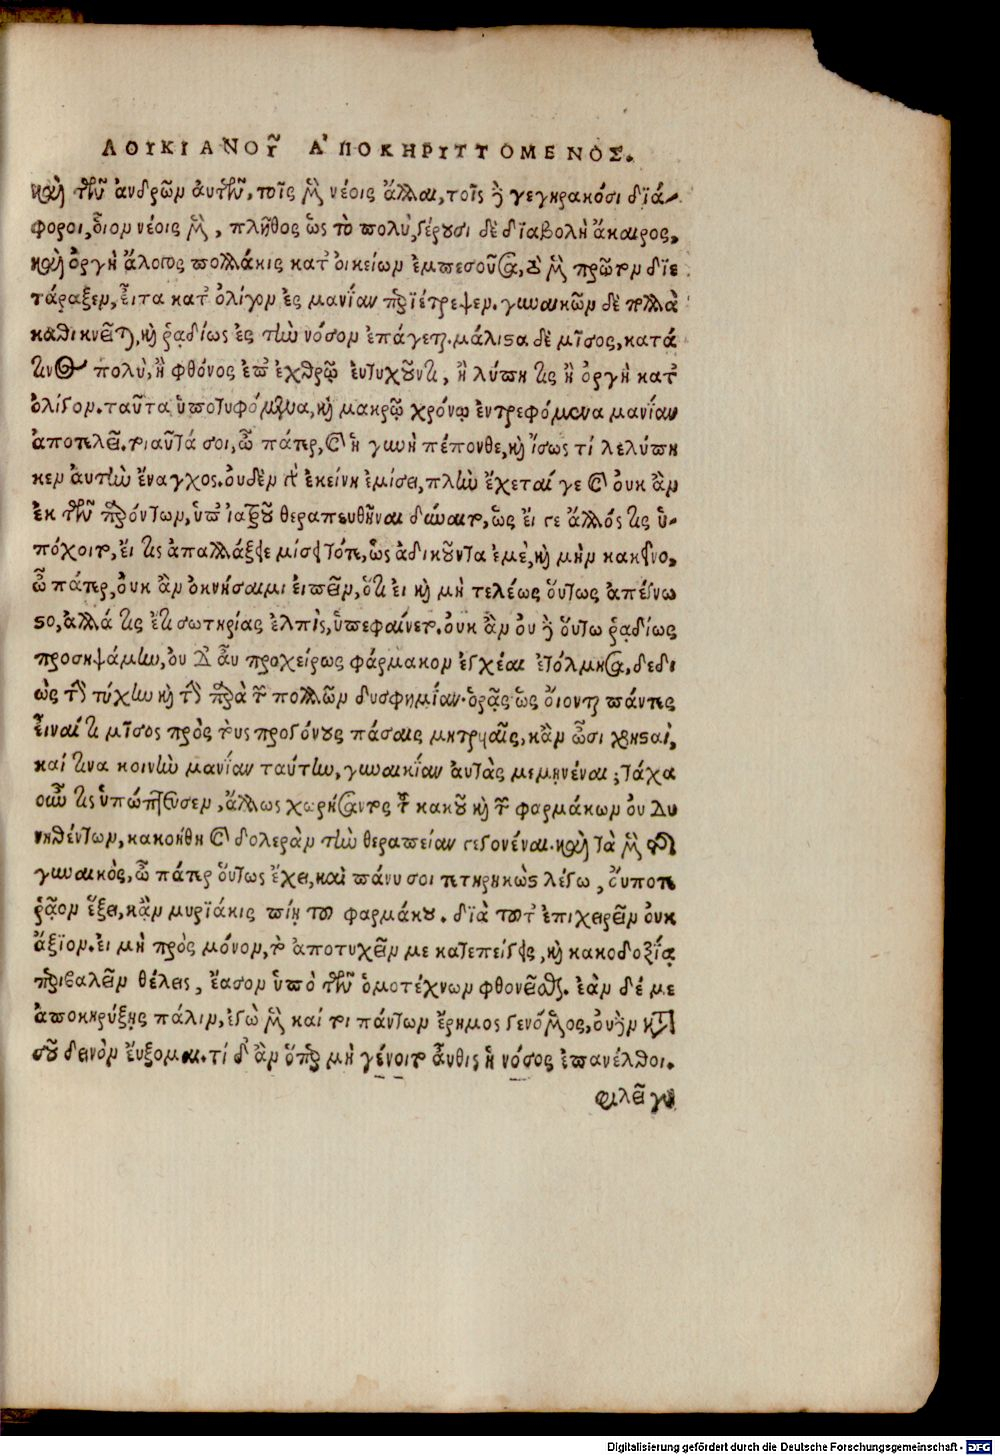 ΛΟΥΚΙΑΝΟΥ͂ Ἀ ΠΟΚΗΡΥΤΤΟΜΕΝΟΣ.
καὶ τῶν ἀνδρῶν αὐτῶν, τοῖς μὲν νέοις ἄλλαι, τοῖς δὲ γεγηρακόσι διά-
φοροι, οἷον νέοις μὲν, πλῆθος ὡς τὸ πολύ, γέρουσι δὲ διαβολὴ ἄκαιρος,
καὶ ὀργὴ ἄλογος πολλάκις κατ' οἰκείων ἐμπεσοῦσα, τὸ μὲν πρῶτον διε
τάραξεν, εἶτα κατ' ὀλίγον ἐς μανίαν περιέτρεψεν. γυναικῶν δὲ πολλὰ
καθικνεῖται, καὶ ῥᾳδίως ἐς τὴν νόσον ἐπάγεται. μάλιστα δὲ μῖσος, κατά
τινος πολὺ, ἢ φθόνος ἐπ' ἐχθρῷ εὐτυχοῦντι, ἢ λύπη τις ἢ ὀργὴ κατ'
ὀλίγον. ταῦτα ὑποτυφόμενα, καὶ μακρῷ χρόνῳ ἐντρεφόμενα μανίαν
ἀποτελεῖ. τοιαῦτά σοι, ὦ πάτερ, καὶ ἡ γυνὴ πέπονθε, καὶ ἴσως τί λελύπη
κεν αὐτὴν ἔναγχος. οὐδὲν γὰρ ἐκείνη ἐμίσει, πλὴν ἔχεταί γε καὶ οὐκ ἂν
ἐκ τῶν παρόντων, ὑπ' ἰατροῦ θεραπευθῆναι δύναιτο, ὡς εἴ γε ἄλλός τις ὑ-
πόχοιτο, εἴ τις ἀπαλλάξειε μίσει τότε, ὡς ἀδικοῦντα ἐμὲ, καὶ μὴν κακεῖνο,
ὦ πάτερ, οὐκ ἂν ὀκνήσαιμι εἰπεῖν, ὅτι εἰ καὶ μὴ τελέως οὕτως ἀπέγνω
στο, ἀλλά τις ἔτι σωτηρίας ἐλπὶς, ὑπεφαίνετο. οὐκ ἂν οὐδὲ οὕτω ῥᾳδίως
προσηψάμην, οὐδ' ἂν προχείρως φάρμακον ἐγχέαι ἐτόλμησα, δεδι
ὼς τὴν τύχην καὶ τὴν παρὰ τῶν πολλῶν δυσφημίαν. ὁρᾷς ὡς οἴονται πάντες
εἶναί τι μῖσος πρὸς τοὺς προγόνους πάσαις μητρυιαῖς, κἂν ὦσι χρησταὶ,
καί τινα κοινὴν μανίαν ταύτην, γυναικίαν αὐτὰς μεμηνέναι; τάχα
οὖν τις ὑπώπτευσεν, ἄλλως χωρήσαντος τοῦ κακοῦ καὶ τῶν φαρμάκων οὐ δυ
νηθέντων, κακοήθη καὶ δολερὰν τὴν θεραπείαν γεγονέναι. καὶ τὰ μὲν περὶ
γυναικὸς, ὦ πάτερ οὕτως ἔχει, καὶ πάνυ σοι τετηρηκὼς λέγω, οὔποτε
ῥᾷον ἕξει, κἂν μυριάκις πίῃ τοῦ φαρμάκου. διὰ τοῦτ' ἐπιχειρεῖν οὐκ
ἄξιον. εἰ μὴ πρὸς μόνον, τὸ ἀποτυχεῖν με κατεπείγεις, καὶ κακοδοξίᾳ
περιβαλεῖν θέλεις, ἔασον ὑπὸ τῶν ὁμοτέχνων φθονεῖσθαι. ἐὰν δέ με
ἀποκηρύξῃς πάλιν, ἐγὼ μὲν καί τοι πάντων ἔρημος γενόμενος, οὐδὲν κατὰ
σοῦ δεινὸν εὔξομαι. τί δ' ἂν ὅπερ μὴ γένοιτο αὖθις ἡ νόσος ἐπανέλθοι.
φιλεῖ γὰρ